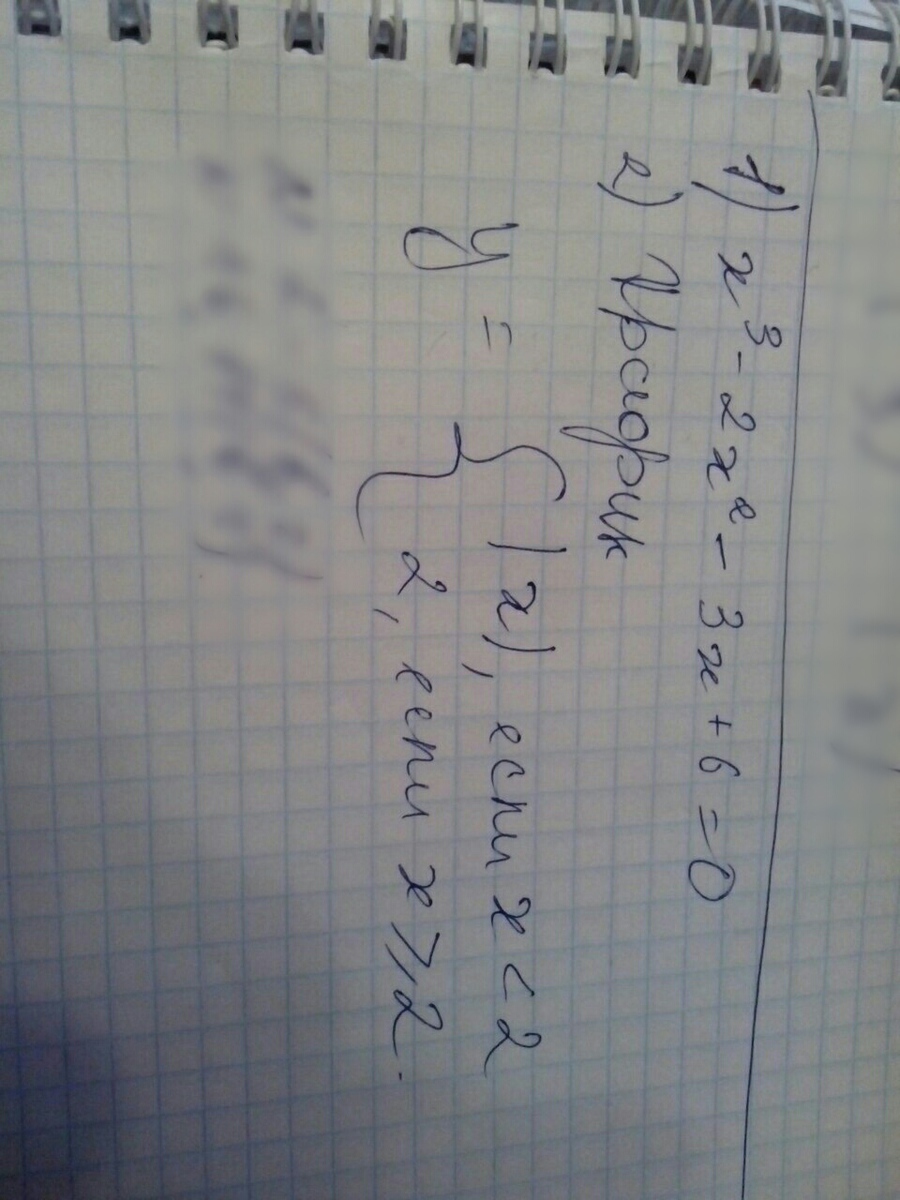 1) x³ - 2x² - 3x + 6 = 0
2) График
y = { |x|, если x < 2
2, если x ⩾ 2.